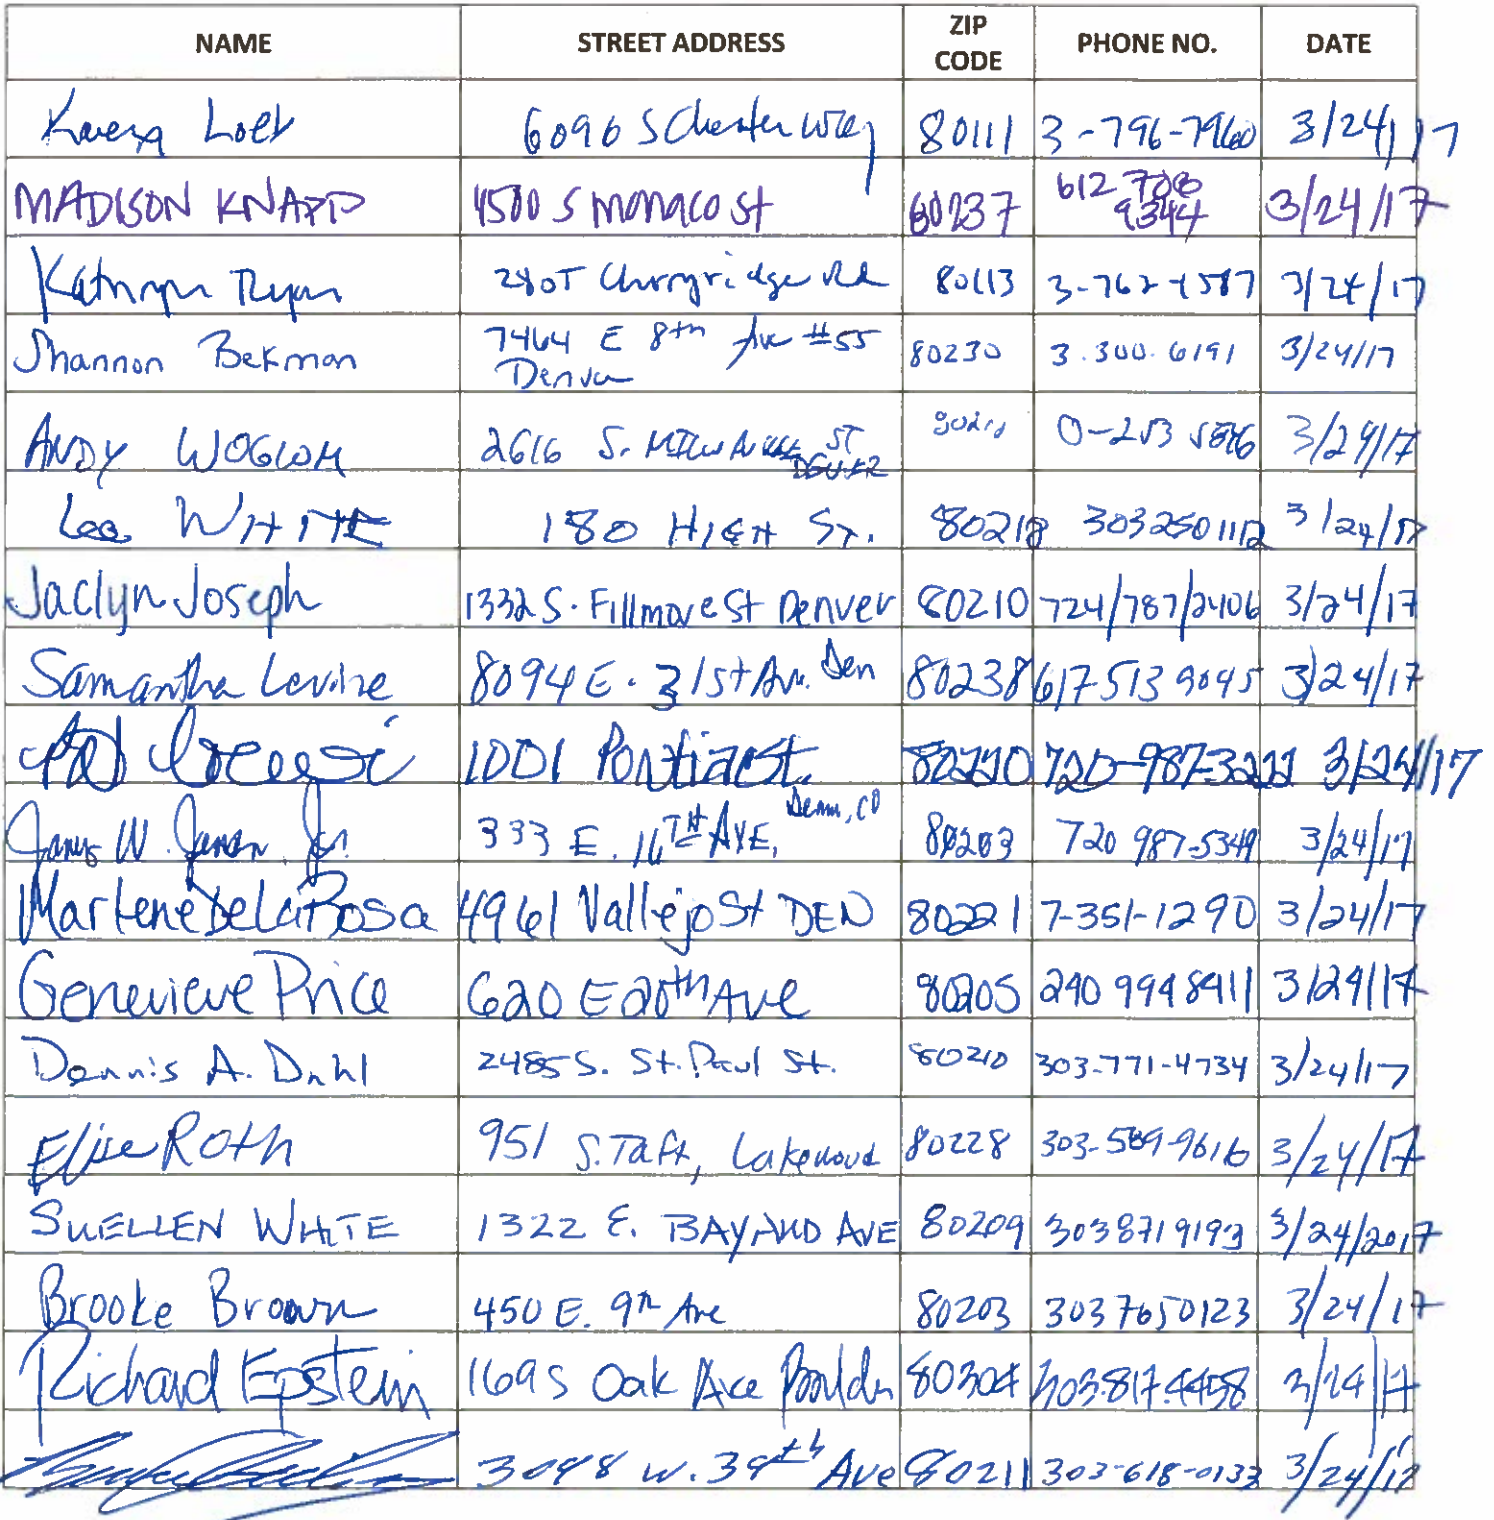 NAME STREET ADDRESS ZIP CODE PHONE NO. DATE
6096 S Chester Way 80111 3-796-7960 3/24/17
MADISON KNAPP 4500 S MONACO St 80237 612 708 9344 3/24/17
Kathryn Ryan Cherryridge Rd 80113 3-762-1587 3/24/17
Shannon Bekman 7464 E 8th Ave #55 Denver 80230 3.300.6191 3/24/17
ANDY WOGLOM 2616 S. MILWAUKEE ST DENVER 80210 3/24/17
Lee WHITE 180 HIGH ST. 80218 3032501112 3/24/17
Jaclyn Joseph 1332 S. Fillmore St Denver 80210 724/787/2406 3/24/17
Samantha Levine 8094 E. 31st Av. Den 80238 617 513 9045 3/24/17
1001 Pontiac St. 80220 720-987-3222 3/24/17
James W. Jr. 333 E. 16TH AVE, Denver, CO 80203 720 987-5349 3/24/17
Marlene De La Rosa 4961 Vallejo St DEN 80221 7-351-1290 3/24/17
Genevieve Price 620 E 20th Ave 80205 240 994 8411 3/24/17
Dennis A. Dahl 2485 S. St. Paul St. 80210 303-771-4734 3/24/17
Elise Roth 951 S. Taft, Lakewood 80228 303-589-9616 3/24/17
SUELLEN WHITE 1322 E. BAYAUD AVE 80209 303 871 9193 3/24/2017
Brooke Brown 450 E. 9th Ave 80203 303 765 0123 3/24/17
Richard Epstein 1695 Oak Ave Boulder 80304 303.817.4458 3/24/17
3048 W. 39th Ave 80211 303-618-0133 3/24/17